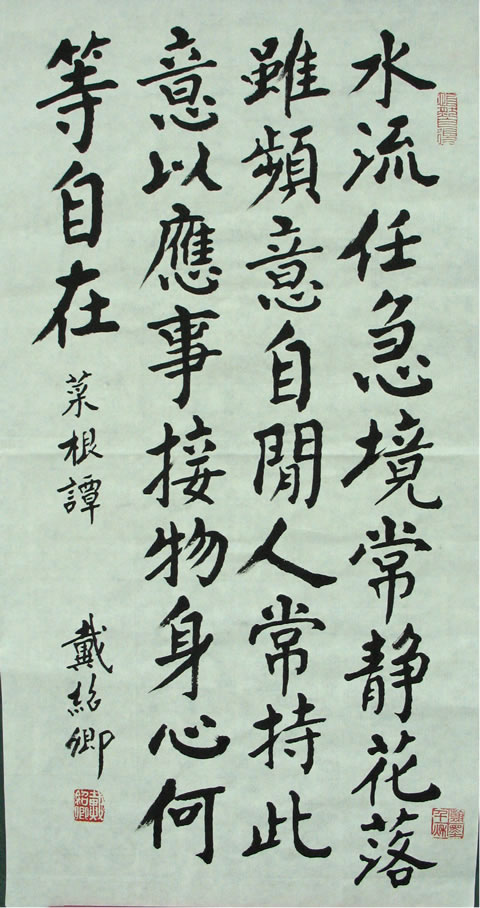 水流任急境常静花落
雖頻意自閒人常持此
意以應事接物身心何
等自在
菜根譚
戴紹卿